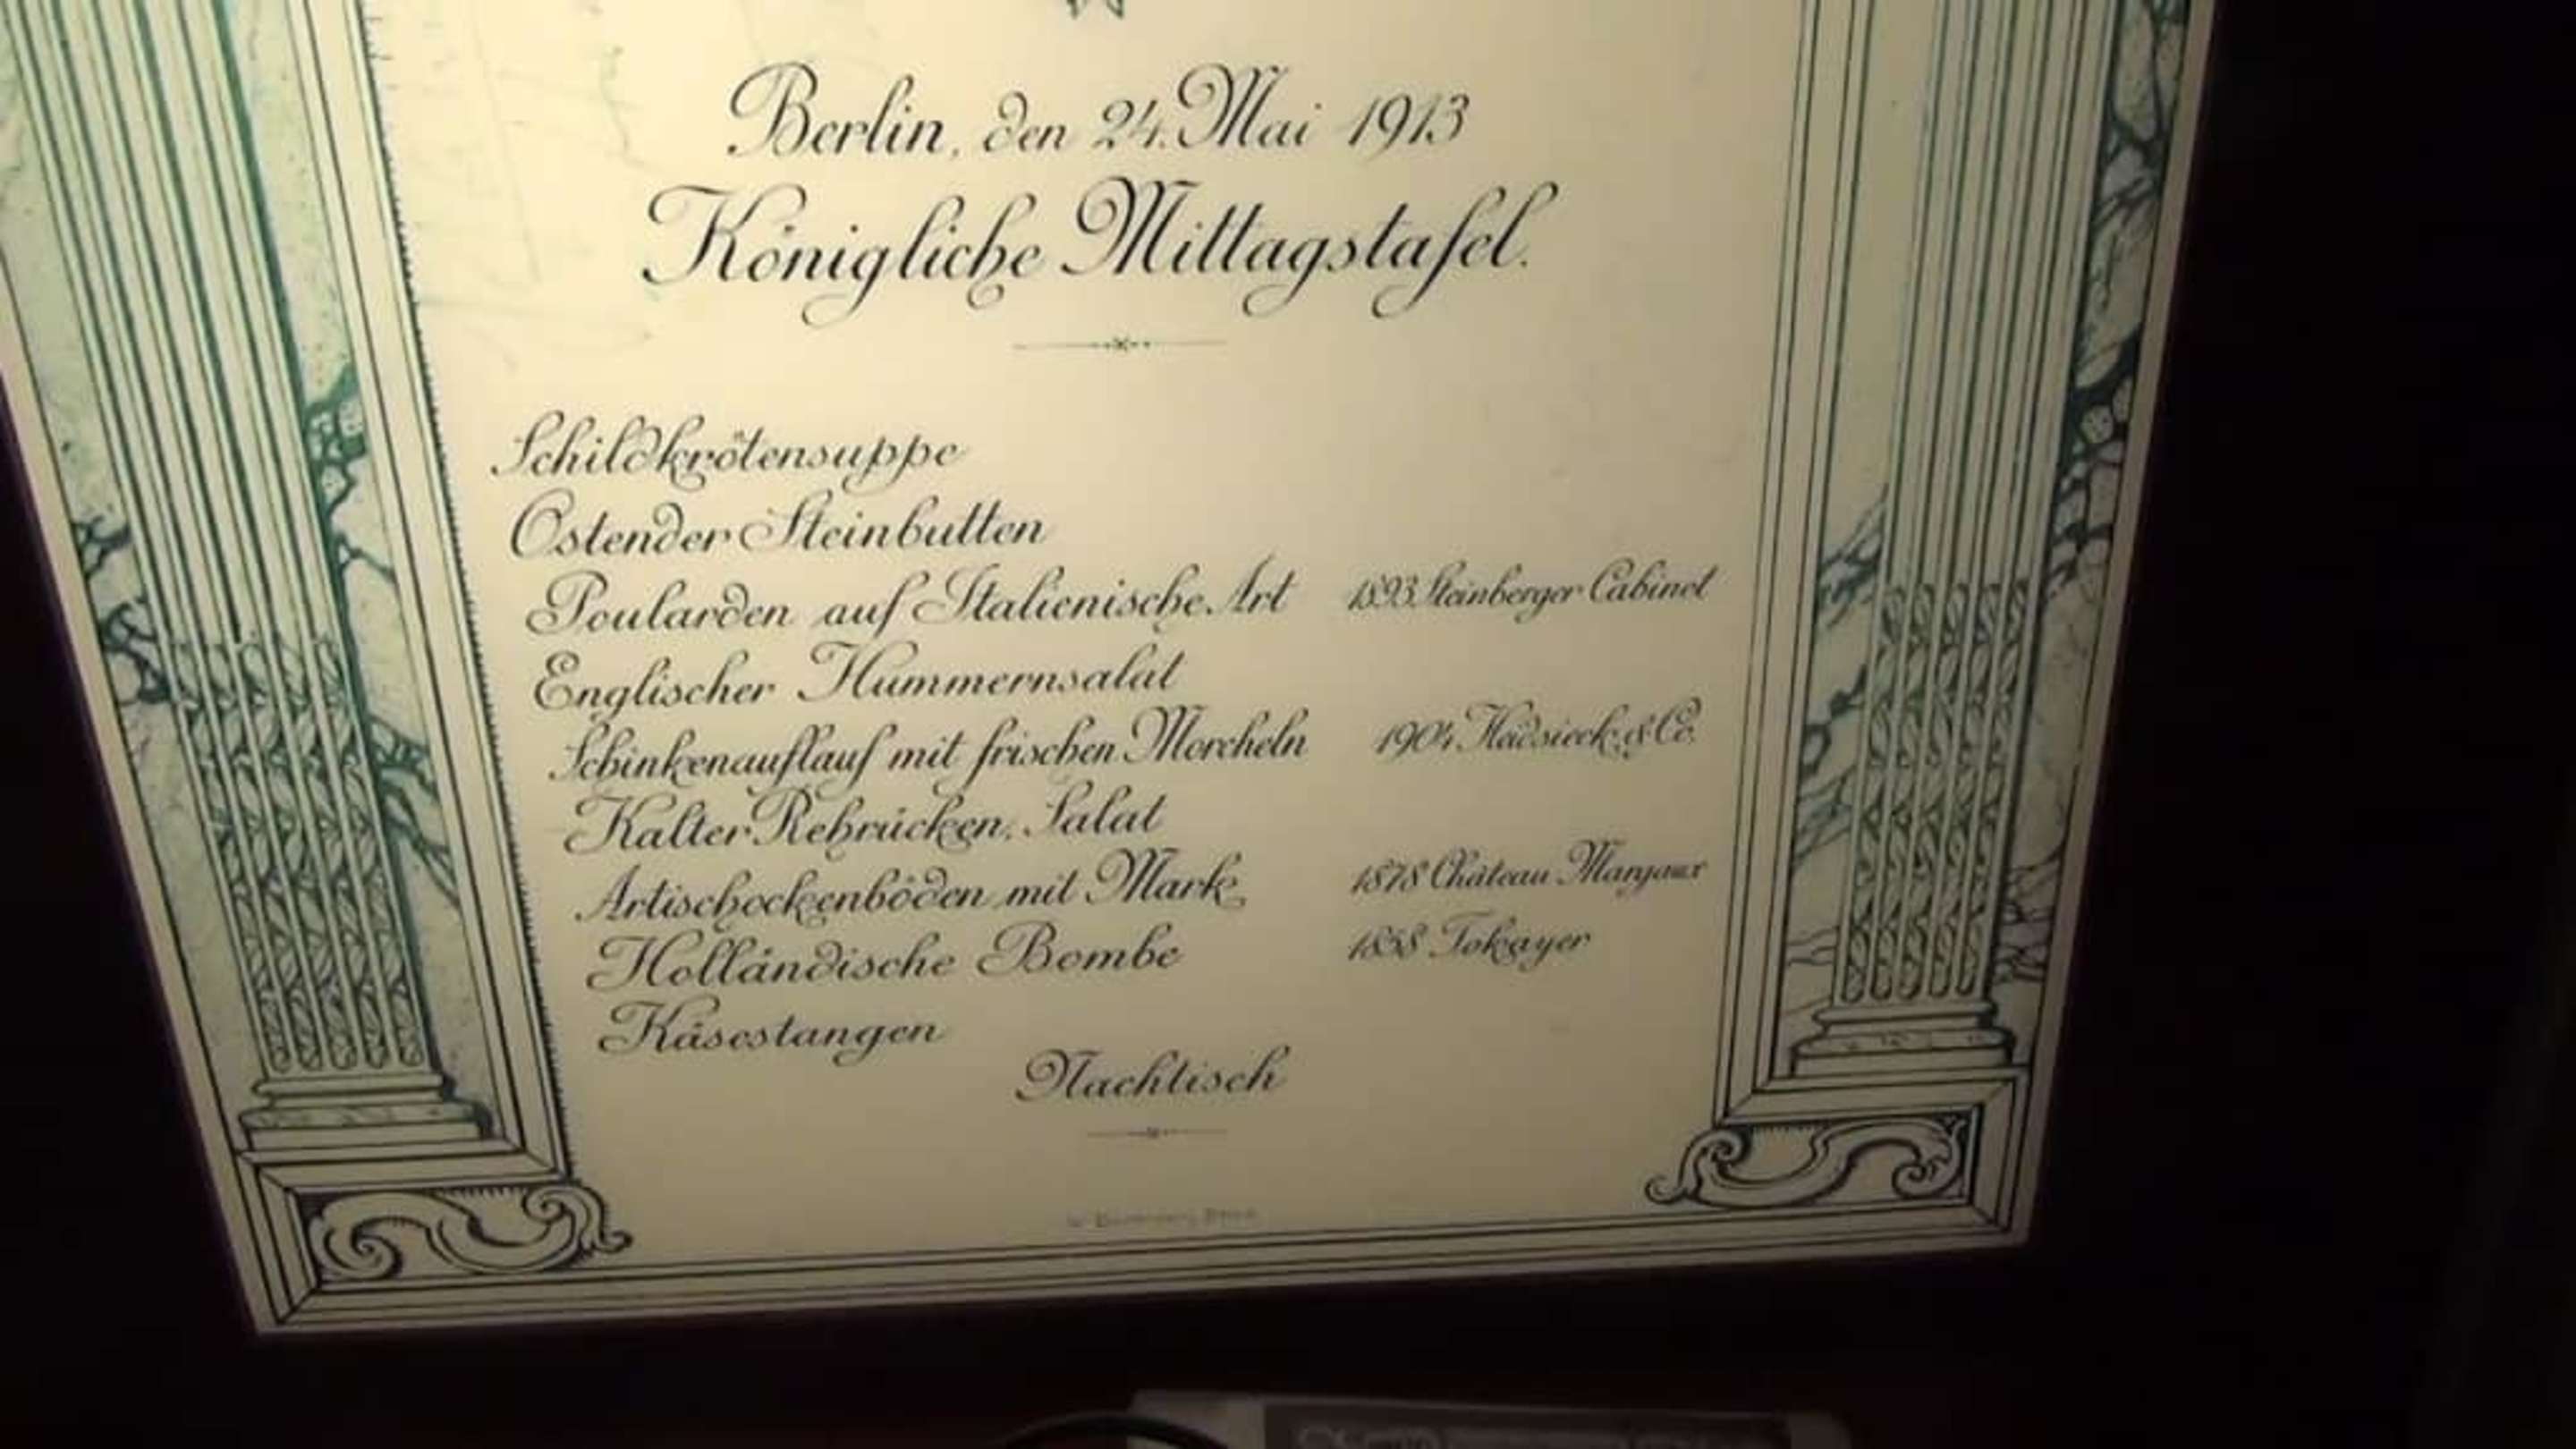 Berlin, den 24. Mai 1913
Königliche Mittagstafel.
Schildkrötensuppe
Ostender Steinbutten
Poularden auf Italienische Art 1893 Steinberger Cabinet
Englischer Hummernsalat
Schinkenauflauf mit frischen Morcheln 1904 Heidsieck & Co.
Kalter Rehrücken, Salat
Artischockenböden mit Mark 1878 Château Margaux
Holländische Bombe 1858 Tokayer
Käsestangen
Nachtisch